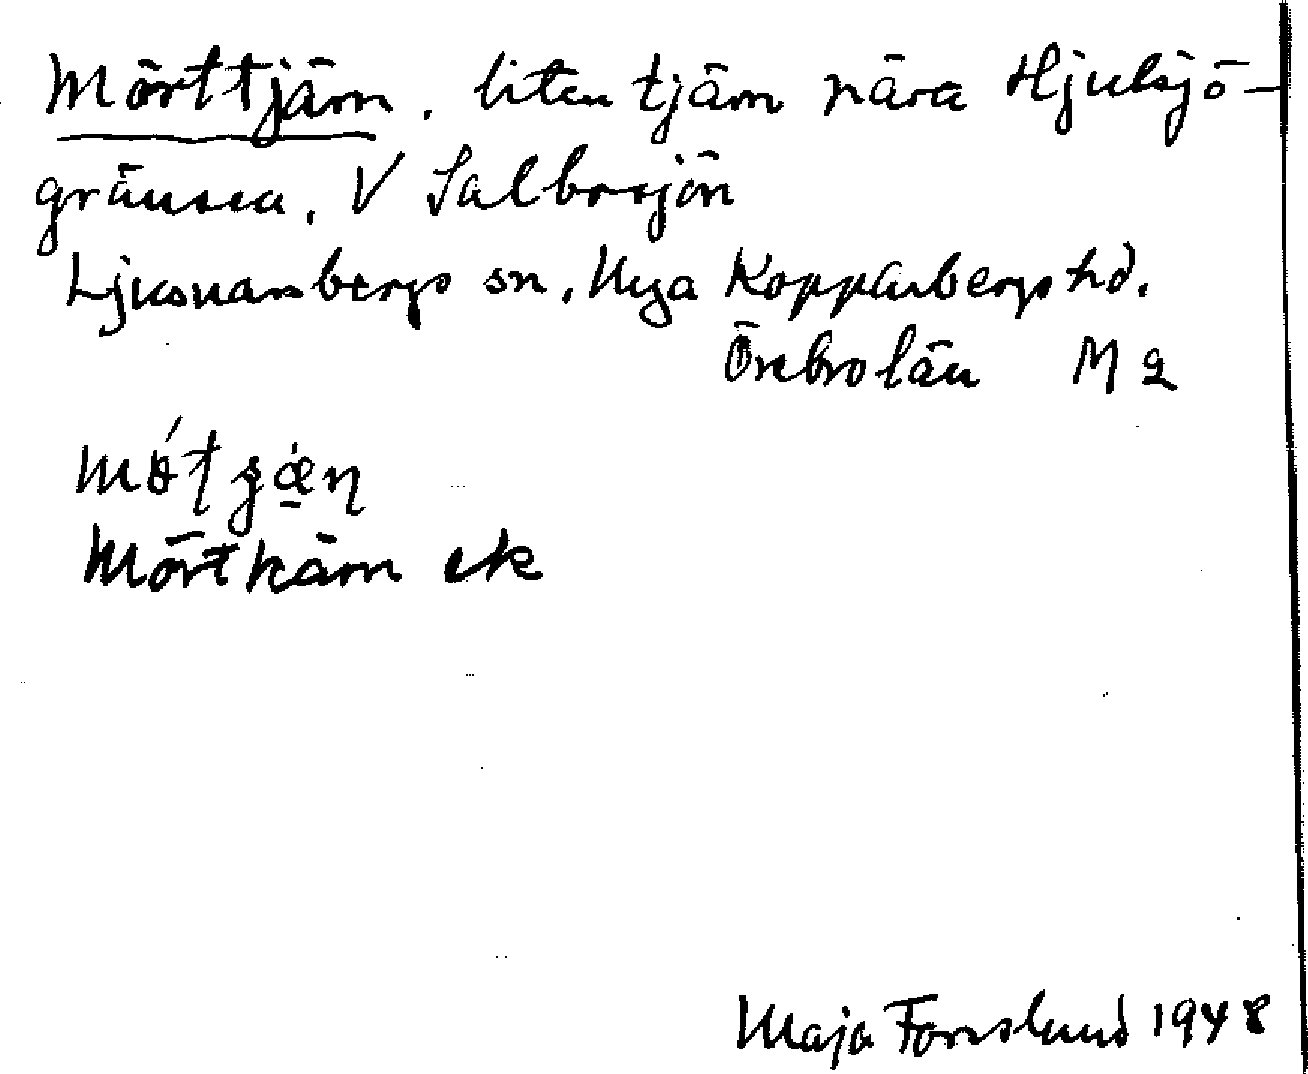 Mörttjärn, liten tjärn nära Hjulsjö-
gränsen, V Salbosjön
Ljusnarsbergs sn, Nya Kopparbergs hd.
Örebro län M 2
Mörtkärn ek
Maja Forslund 1948